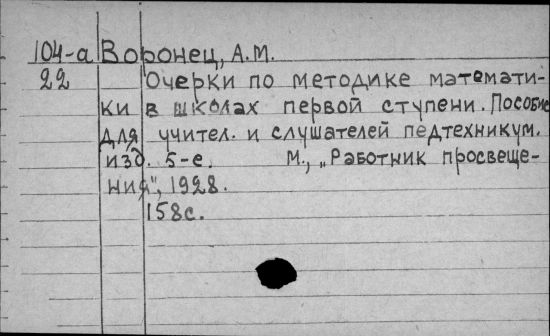 104-а Воронец, А.М.
22 Очерки по методике математи-
ки в школах первой ступени. Пособие
для учител. и слушателей педтехникум.
изд. 5-е. М., „Работник просвеще-
ния", 1928.
158с.